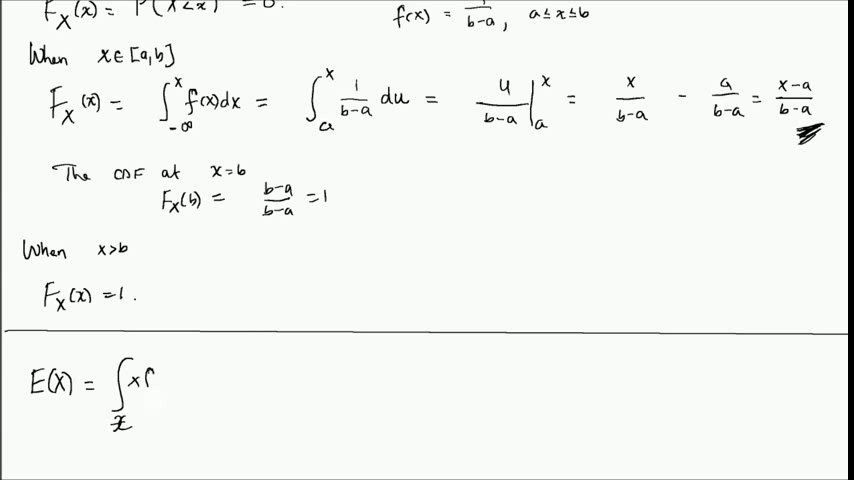 F_X(x) = P(X<x) = 0.
f(x) = 1/(b-a), a≤x≤b
When x∈[a,b]
F_X(x) = ∫_{-∞}^{x} f(x)dx = ∫_{a}^{x} 1/(b-a) du = u/(b-a) |_{a}^{x} = x/(b-a) - a/(b-a) = (x-a)/(b-a)
The CDF at x=b
F_X(b) = (b-a)/(b-a) = 1
When x>b
F_X(x) = 1.
E(X) = ∫_x x